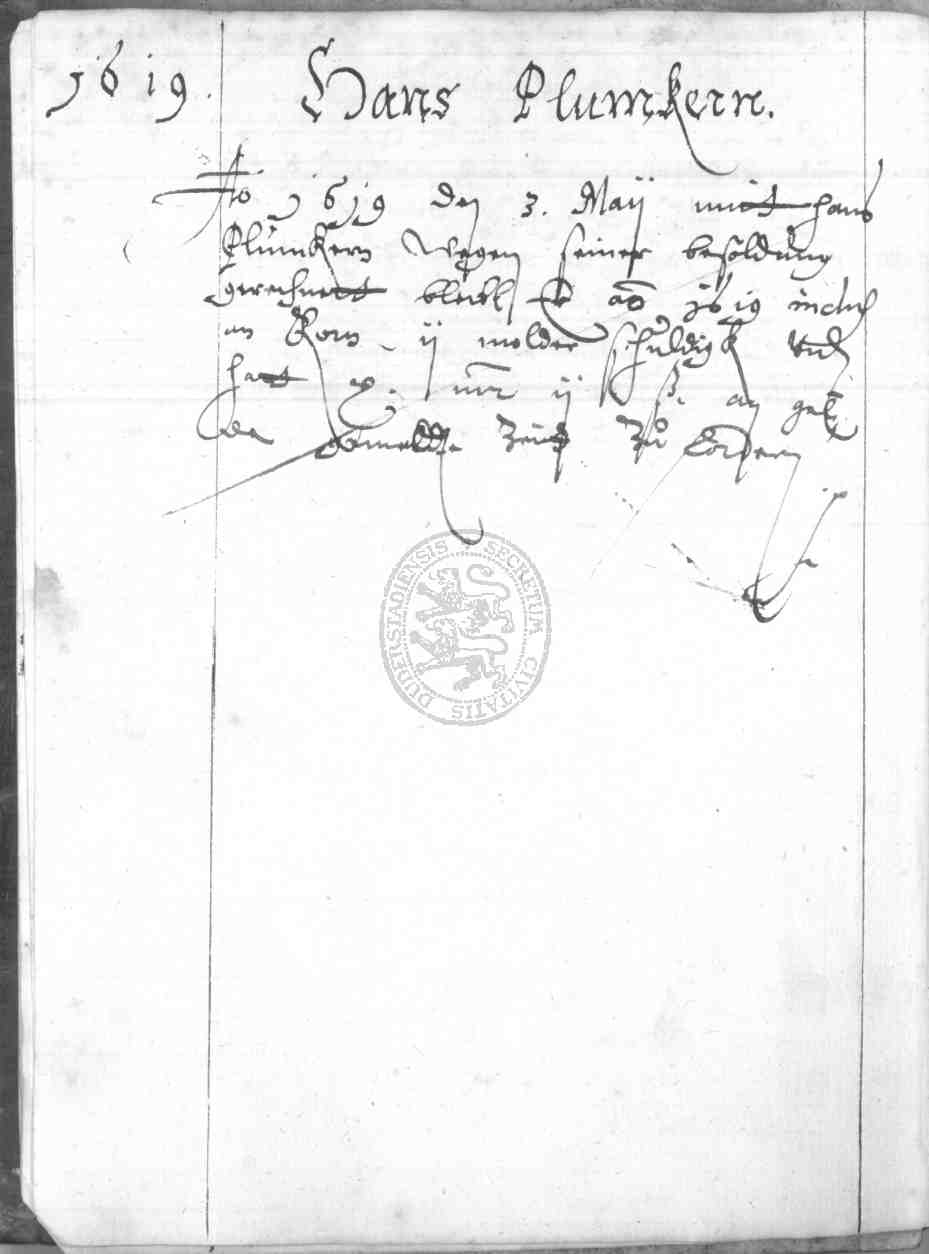 1619. Hans Plumkern.
Ao 1619 den 3. Maij mitt Hans
Plumkern wegen seiner besoldung
gerechnett bleibt Er ao 1619 inclus
an Korn ij molder schuldigk vnd
hatt mr ij ß. an gelt
gemeldte Zeitt zu fordern
SECRETUM CIVITATIS DUDERSTADIENSIS